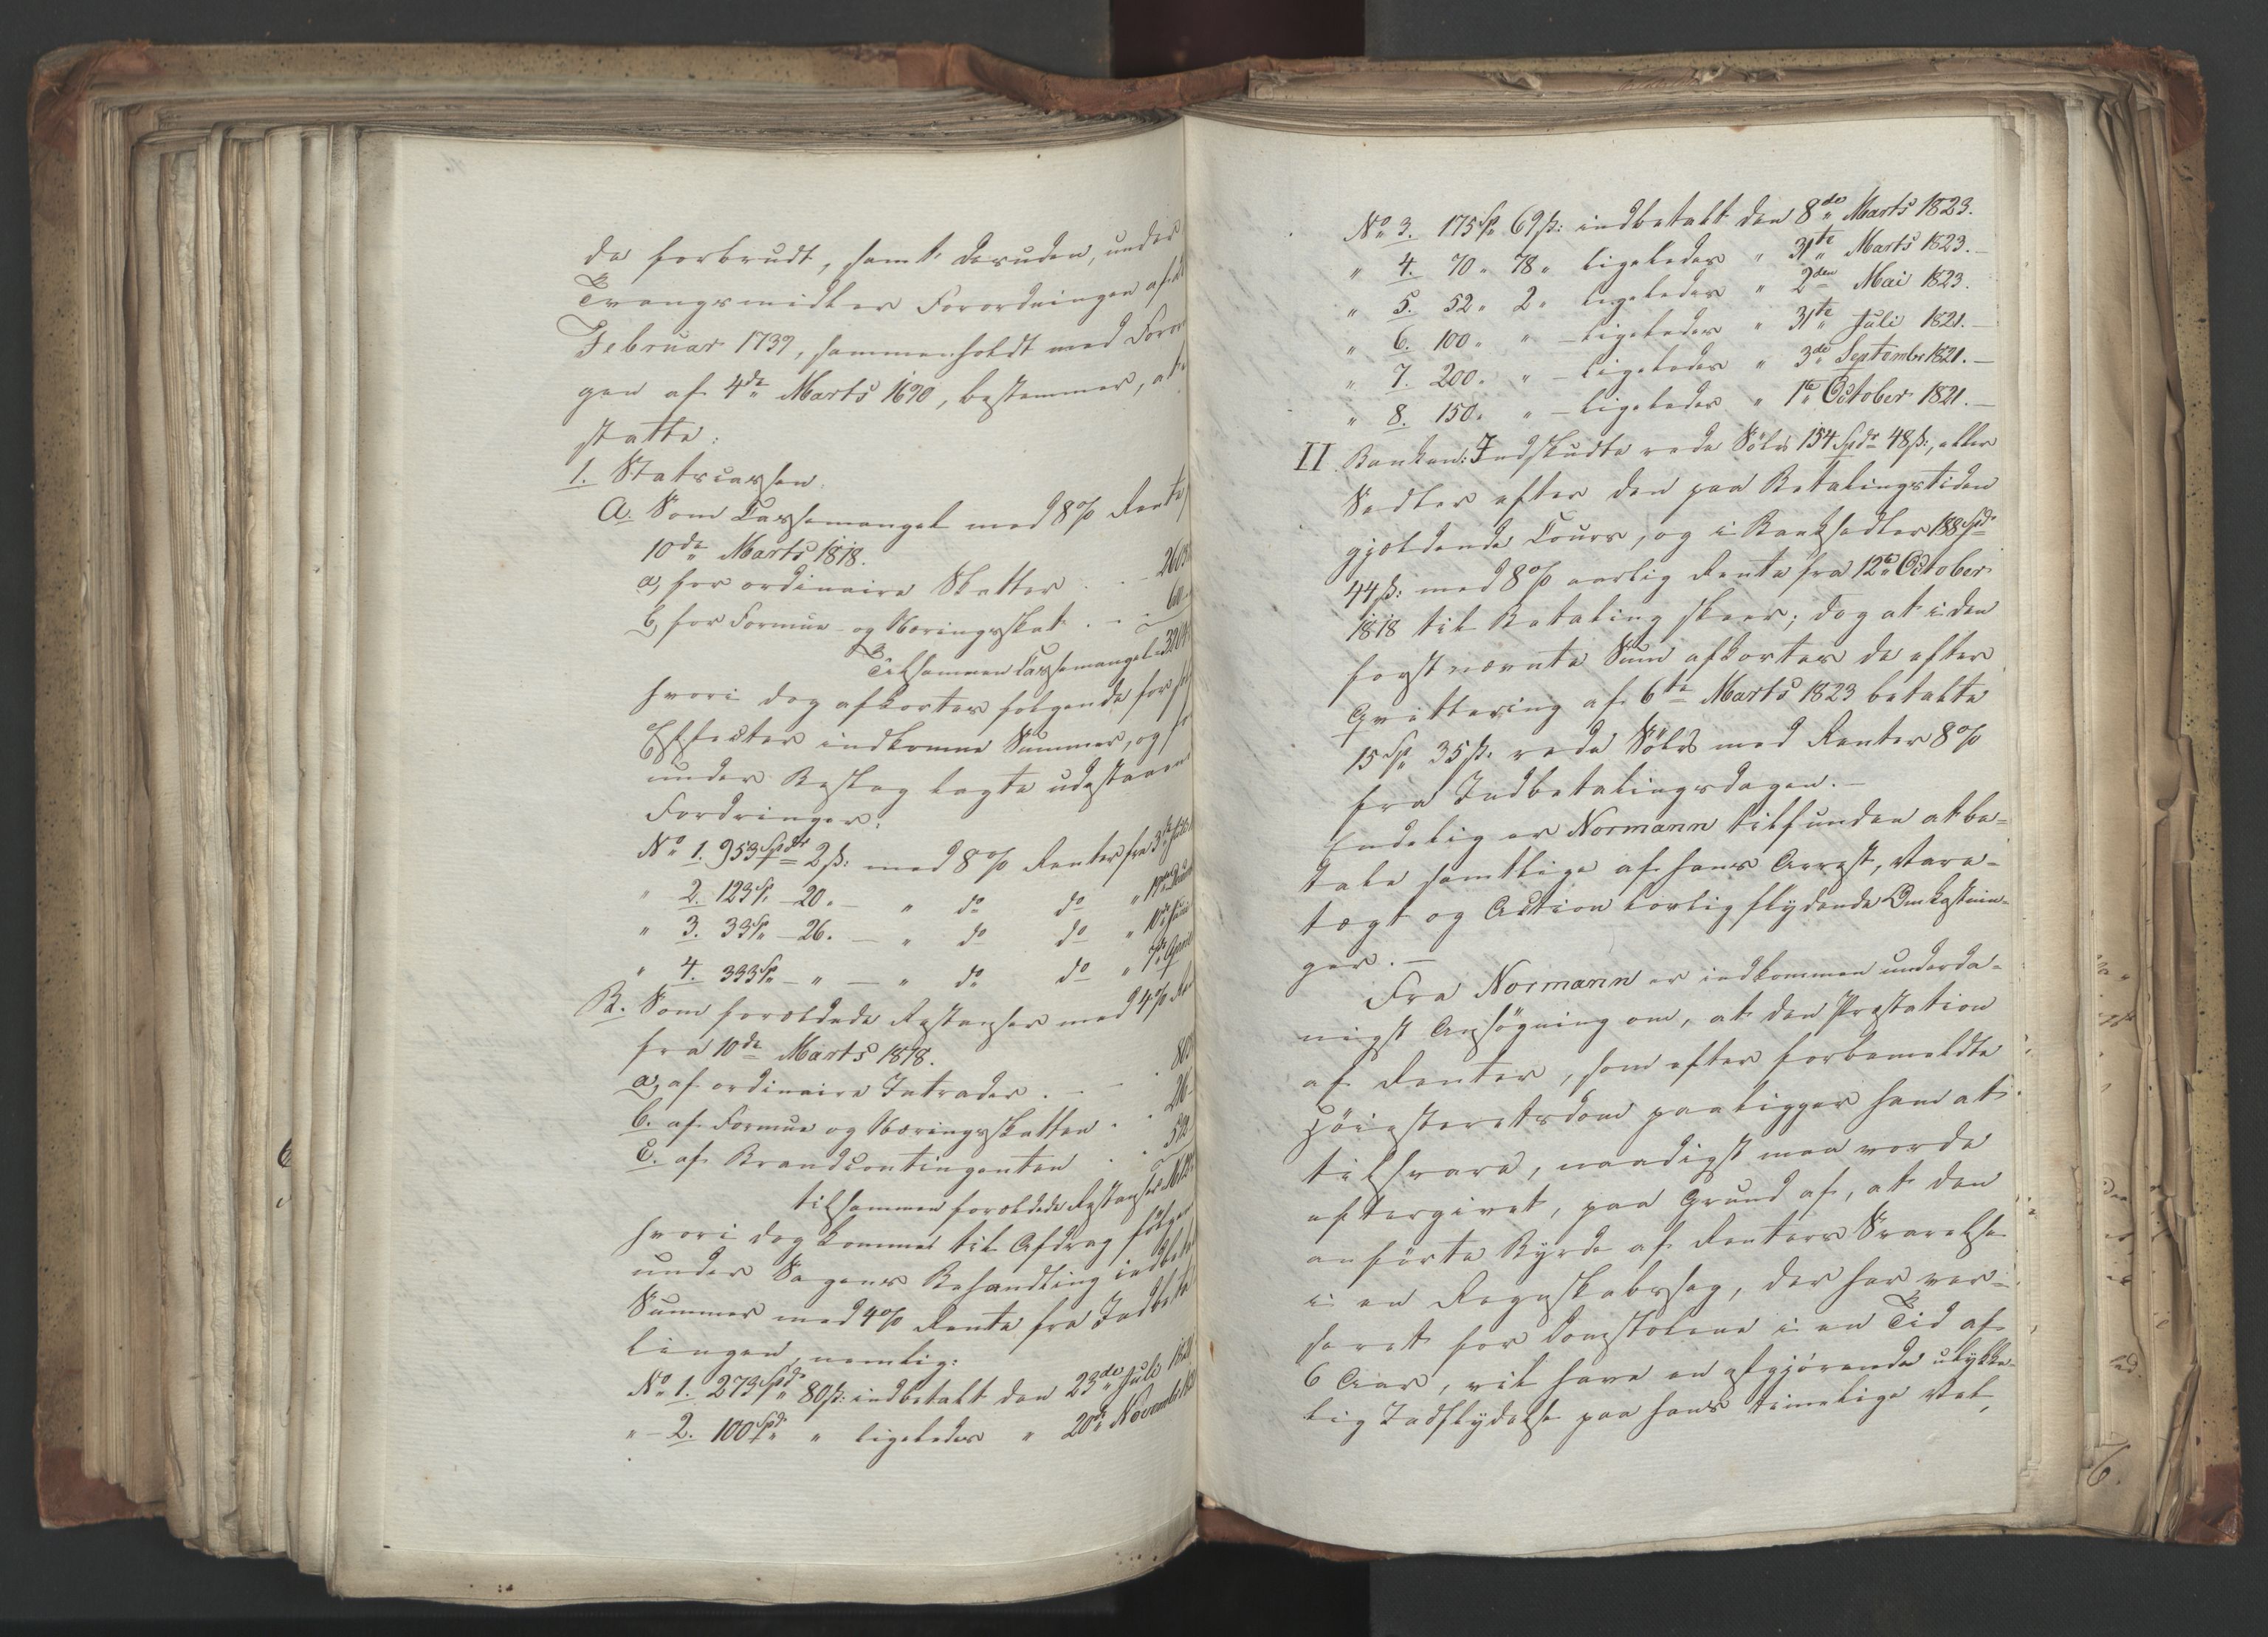 de forbrudt, samt desuden, under
Tvangsmidler Forordningen af
Februar 1739, sammenholdt med Foror
gen af 4de Marts 1690, bestemmer, at
statte:
1. Statscassen.
A. Som Cassemangel med 8% Rente
10de Marts 1818.
a, for ordinaire Skatter . . -
b, for Formue- og Næringsskat . -
Tilsammen Cassemangel
hvori dog afkortes følgende for
Effecter indkomne Summer, og
under Beslag lagte udestaaen
Fordringer:
No 1. 953 Spdr 2 ß: med 8% Renter fra 3
" 2. 123 Sp. - 20. - " do do " 19
" 3. 33 Sp. - 26. - " do do " 10
" 4. 333 Sp. - " - " do do " 7 April
B. Som forældede Restanser med 4%
fra 10de Marts 1818.
a, af ordinaire Intrader . -
b. af Formue og Næringsskatten .
c. af Brandcontingenten
tilsammen forældede Restanser
hvori dog kommer til Afdrag følgen
under Sagens Behandling indbetal
Summer med 4% Rente fra Indbeta
lingen, nemlig:
No 1. 273 Spd. 80 ß: indbetalt den 23de Juli
" - 2. 100 Spd. " ligeledes " 20de November
No 3. 175 Sp. 69 ß: indbetalt den 8de Marts 1823.
" 4. 70 " 78 " ligeledes " 31te Marts 1823. -
" 5. 52 " 2 " ligeledes " 2den Mai 1823.
" 6. 100 " " - ligeledes " 31te Juli 1821. -
" 7. 200 " " - ligeledes " 3de Septembr 1821. -
" 8. 150 " " - ligeledes " 1te October 1821. -
II. Banken: Indskudte rede Sölv 154 Spdr 48 ß:, eller
Sedler efter den paa Betalingstiden
gjældende Cours, og i Banksedler 188 Spd.
44 ß: med 8% aarlig Rente fra 12te October
1818 til Betaling skeer; dog at i den
først nævnte Sum afkortes de efter
Qvittering af 6te Marts 1823 betalte
15 Sp. 35 ß. rede Sölv med Renter 8%
fra Indbetalingsdagen. -
Endelig er Normann tilfunden at be-
tale samtlige af hans Arrest, Vare-
tægt og Action lovlig flydende Omkostnin-
ger. -
Fra Normann er indkommen underda-
nigst Ansögning om, at den Præstation
af Renter, som efter forbemeldte
Höiesteretsdom paaligger ham at
tilsvare, naadigst maa vorde
eftergivet, paa Grund af, at den
anförte Byrde af Renters Svarelse
i en Regnskabssag, der har ver-
seret for Domstolene i en Tid af
6 Aar, vil have en afgjörende ulykke-
lig Indflydelse paa hans timelige Vel,